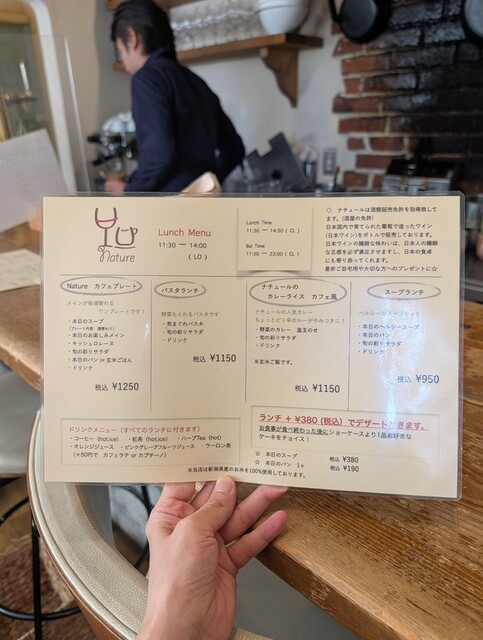 nature
Lunch Menu
11:30 ー 14:00
( LO )
Lunch Time
11:30 ー 14:30 ( CL )
Bal Time
17:30 ー 23:00 ( CL )
◇ ナチュールは酒類販売免許を取得致してます。(酒屋の免許)
日本国内で育てられた葡萄で造ったワイン(日本ワイン)をボトルで販売しております。
日本ワインの繊細な味わいは、日本人の繊細な五感を必ず満足させますし、日本の食卓にも寄り添ってくれます。
是非ご自宅用や大切な方へのプレゼントに☆
Nature カフェプレート
メインが毎週替わる
ワンプレートです!
・本日のスープ
・本日のお楽しみメイン
・キッシュロレーヌ
・旬の彩りサラダ
・本日のパン or 玄米ごはん
・ドリンク
税込 ¥1250
パスタランチ
野菜もとれるパスタです
・気まぐれパスタ
・旬の彩りサラダ
・ドリンク
税込 ¥1150
ナチュールの
カレーライス カフェ風
ナチュールの人気カレー
ちょっとピリ辛のルーがやみつきに!
・野菜のカレー 温玉のせ
・旬の彩りサラダ
・ドリンク
※玄米ご飯です。
税込 ¥1150
スープランチ
・本日のヘルシースープ
・本日のパン
・旬の彩りサラダ
・ドリンク
税込 ¥950
ドリンクメニュー(すべてのランチに付きます)
・コーヒー (hot,ice) ・紅茶 (hot,ice) ・ハーブTea (hot)
・オレンジジュース ・ピンクグレープフルーツジュース ・ウーロン茶
(+50円で カフェラテ or カプチーノ)
ランチ + ¥380 (税込) でデザート付きます。
お食事が食べ終わった後にショーケースより1品お好きな
ケーキをチョイス!
☆ 本日のスープ 税込 ¥380
☆ 本日のパン 1ヶ 税込 ¥190
※当店は新潟県産のお米を100%使用しております。